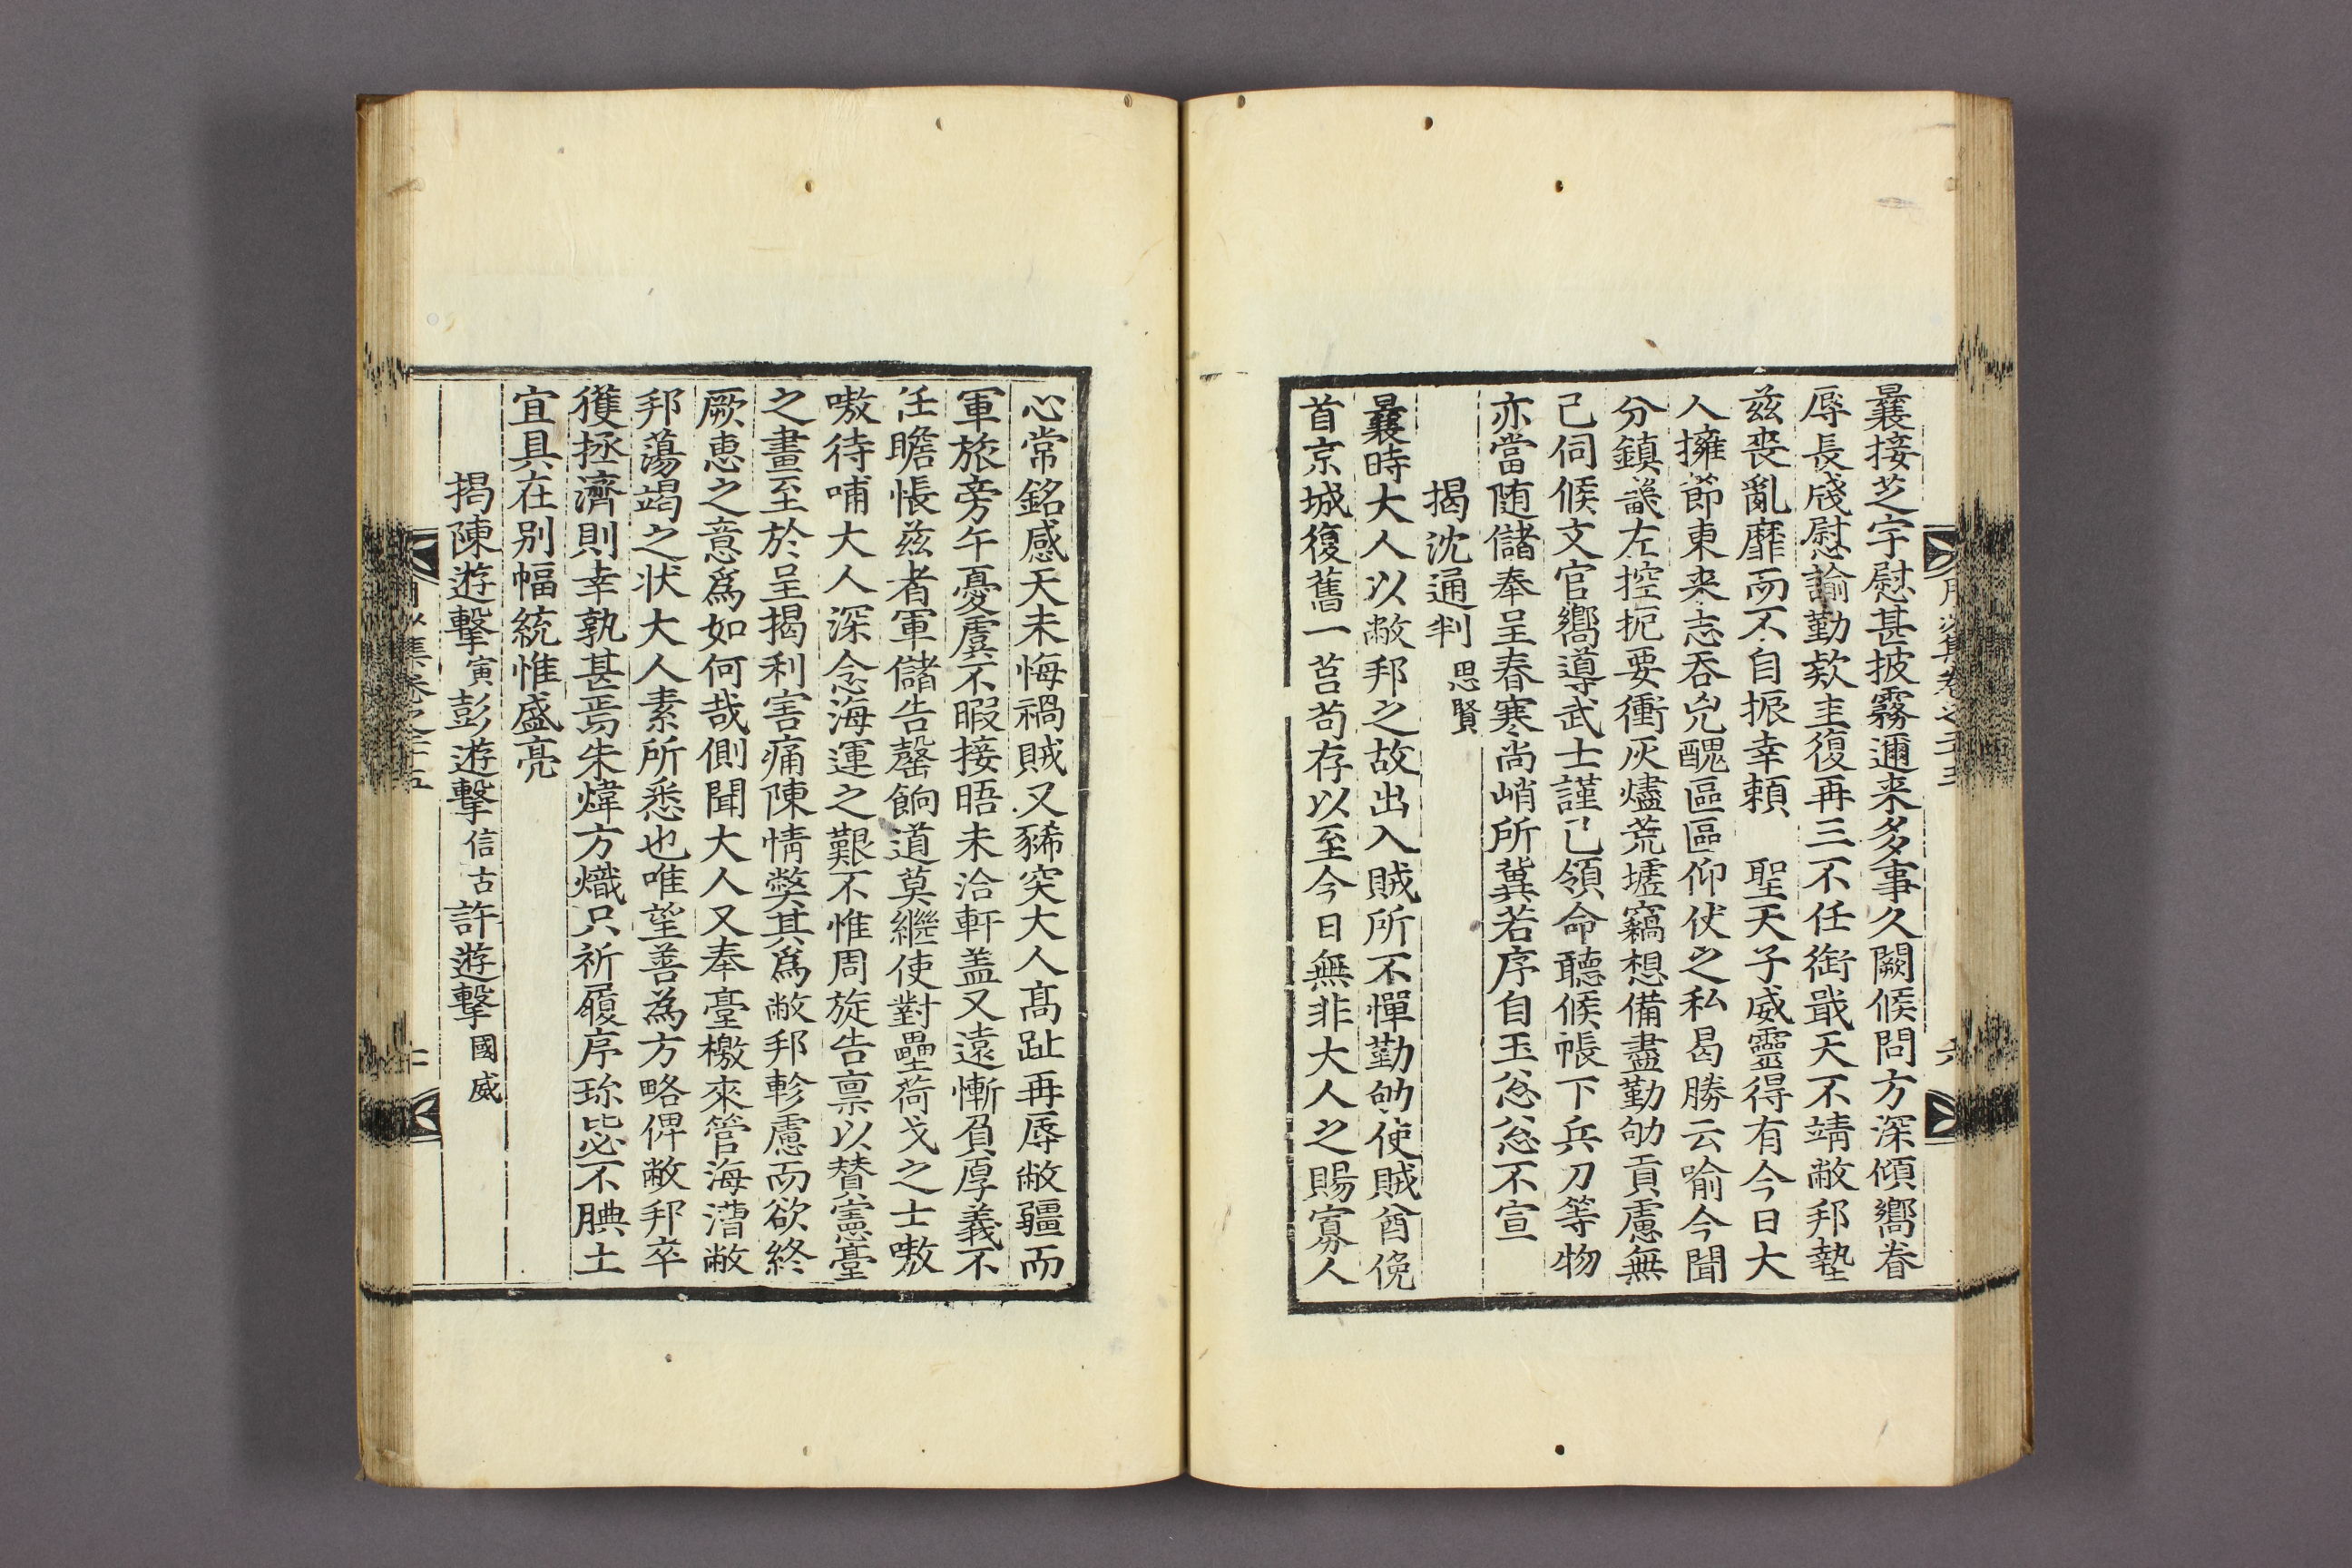 曩接芝宇慰甚披霧邇来多事久闕候問方深傾嚮眷
辱長牋慰諭勤欵圭復再三不任銜戢天不靖敝邦墊
兹喪亂靡而不自振幸頼　聖天子威靈得有今日大
人擁節東来志吞兇醜區區仰伏之私曷勝云喻今聞
分鎮畿左控扼要衝灰燼荒墟竊想備盡勤劬貢慮無
已伺候文官嚮導武士謹已領命聽候帳下兵刀等物
亦當随儲奉呈春寒尚峭所冀若序自玉忩忩不宣
揭沈通判思賢
曩時大人以敝邦之故出入賊所不憚勤劬使賊酋俛
首京城復舊一莒苟存以至今日無非大人之賜寡人
心常銘感天未悔禍賊又豨突大人髙趾再辱敝疆而
軍旅旁午憂虞不暇接晤未洽軒盖又遠慚負厚義不
任瞻悵兹者軍儲告罄餉道莫繼使對壘荷戈之士嗷
嗷待哺大人深念海運之艱不惟周旋告禀以賛憲臺
之畫至於呈揭利害痛陳情獘其爲敝邦軫慮而欲終
厥惠之意爲如何哉側聞大人又奉臺檄來管海漕敝
邦蕩竭之状大人素所悉也唯望善為方略俾敝邦卒
獲拯濟則幸孰甚焉朱煒方熾只祈履序珎毖不腆土
宜具在别幅統惟盛亮
揭陳遊擊寅彭遊擊信古許遊擊國威